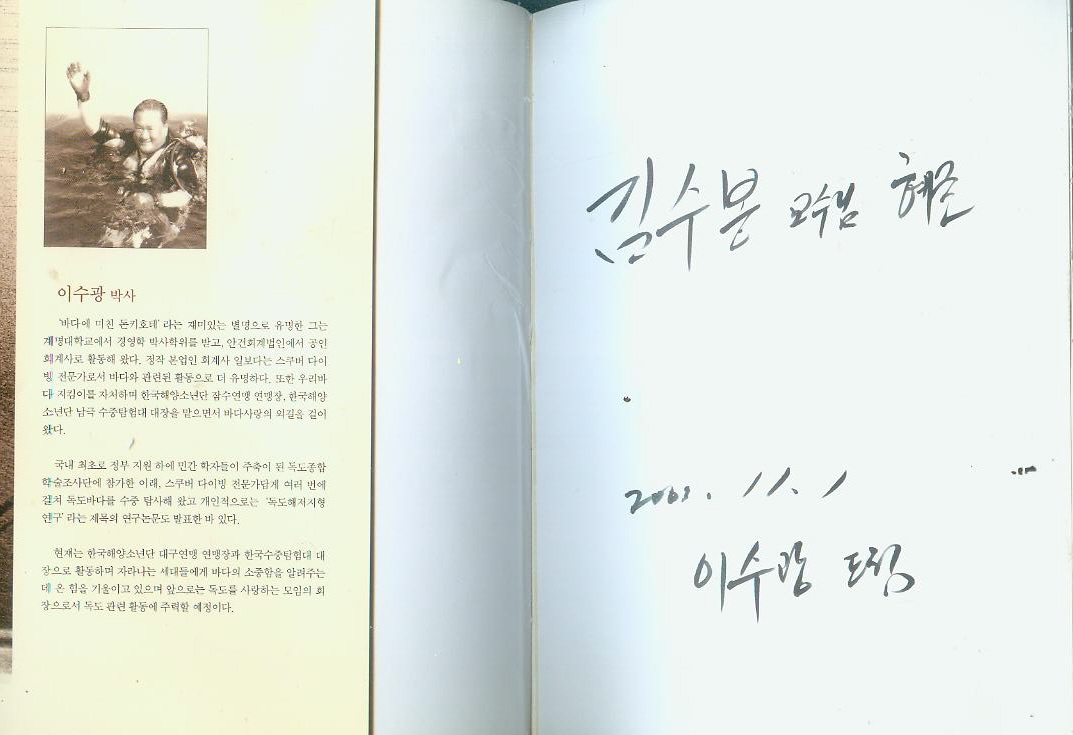 이수광 박사
'바다에 미친 돈키호테' 라는 재미있는 별명으로 유명한 그는
계명대학교에서 경영학 박사학위를 받고, 안건회계법인에서 공인
회계사로 활동해 왔다. 정작 본업인 회계사 일보다는 스쿠버 다이
빙 전문가로서 바다와 관련된 활동으로 더 유명하다. 또한 우리바
다 지킴이를 자처하며 한국해양소년단 잠수연맹 연맹장, 한국해양
소년단 남극 수중탐험대 대장을 맡으면서 바다사랑의 외길을 걸어
왔다.
국내 최초로 정부 지원 하에 민간 학자들이 주축이 된 독도종합
학술조사단에 참가한 이래, 스쿠버 다이빙 전문가답게 여러 번에
걸쳐 독도바다를 수중 탐사해 왔고 개인적으로는 '독도해저지형
연구' 라는 제목의 연구논문도 발표한 바 있다.
현재는 한국해양소년단 대구연맹 연맹장과 한국수중탐험대 대
장으로 활동하며 자라나는 세대들에게 바다의 소중함을 알려주는
데 온 힘을 기울이고 있으며 앞으로는 독도를 사랑하는 모임의 회
장으로서 독도 관련 활동에 주력할 예정이다.
김수봉 교수님 혜존
11. 1
이수광 드림